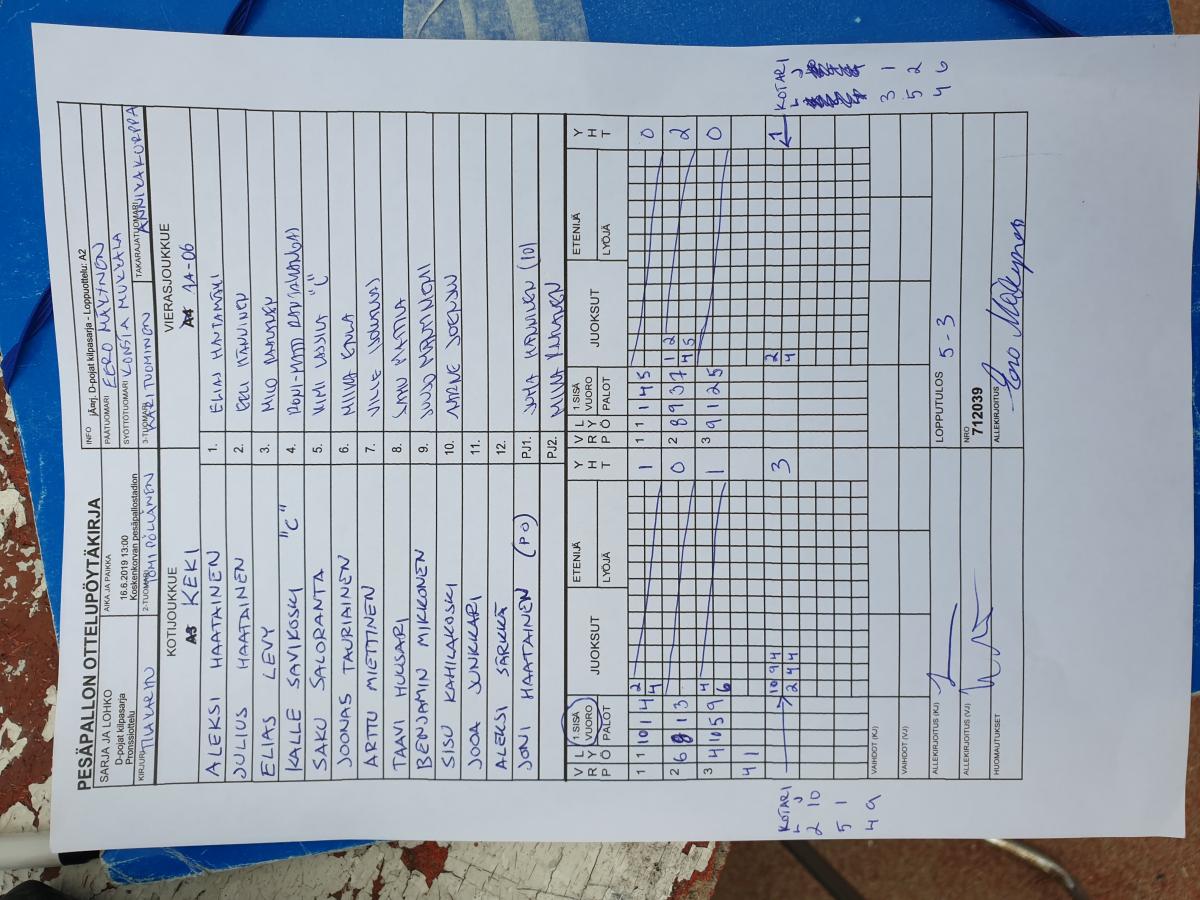 PESÄPALLON OTTELUPÖYTÄKIRJA
SARJA JA LOHKO
D-pojat kilpasarja
Pronssiottelu
AIKA JA PAIKKA
16.6.2019 13:00
Koskenkorvan pesäpallostadion
INFO jÄ¤rj. D-pojat kilpasarja - Loppuottelu: A2
PÄÄTUOMARI EERO MÄKYNEN
SYÖTTÖTUOMARI KONSTA MUKKALA
KIRJURI
2-TUOMARI TOMI PÖLLÄNEN
3-TUOMARI KARI TUOMINEN
TAKARAJATUOMARI ANNIKA KORPPA
KOTIJOUKKUE
KEKI
VIERASJOUKKUE
JA-06
ALEKSI HAATAINEN 1. ELIAS HAUTAMÄKI
JULIUS HAATAINEN 2. EELI MANNINEN
ELIAS LEVY 3. MILO
KALLE SAVIKOSKI "C" 4. RONI-MATTI
SAKU SALORANTA 5. KIMI "C"
JOONAS TAURIAINEN 6. MIIKA
ARTTU MIETTINEN 7. VILLE
TAAVI HUUSARI 8.
BENJAMIN MIKKONEN 9. JUUSO
SISU KAHILAKOSKI 10. AARNE
JOOA JUNKKARI 11.
ALEKSI SÄRKKÄ 12.
JONI HAATAINEN (PO) PJ1. JUHA MANNINEN (101
PJ2.
V L
R Y
P Ö
1.SISÄ
VUORO
PALOT
JUOKSUT
ETENIJÄ
LYÖJÄ
Y
H
T
V L
R Y
P Ö
1.SISÄ
VUORO
PALOT
JUOKSUT
ETENIJÄ
LYÖJÄ
Y
H
T
1 1 10 1 4 2 4 1 1 1 1 4 5 0
2 6 8 1 3 0 2 8 9 3 7 1 2 4 5 2
3 4 10 5 9 4 6 1 3 9 1 2 5 0
4 1
10 9 4 3 2
2 4 4 4
KOTARI
L J
2 10
5 1
4 9
KOTARI
L J
3 1
5 2
4 6
VAIHDOT (KJ)
VAIHDOT (VJ)
ALLEKIRJOITUS (KJ)
LOPPUTULOS 5-3
ALLEKIRJOITUS (VJ)
NRO
712039
HUOMAUTUKSET
ALLEKIRJOITUS
Eero Mäkynen